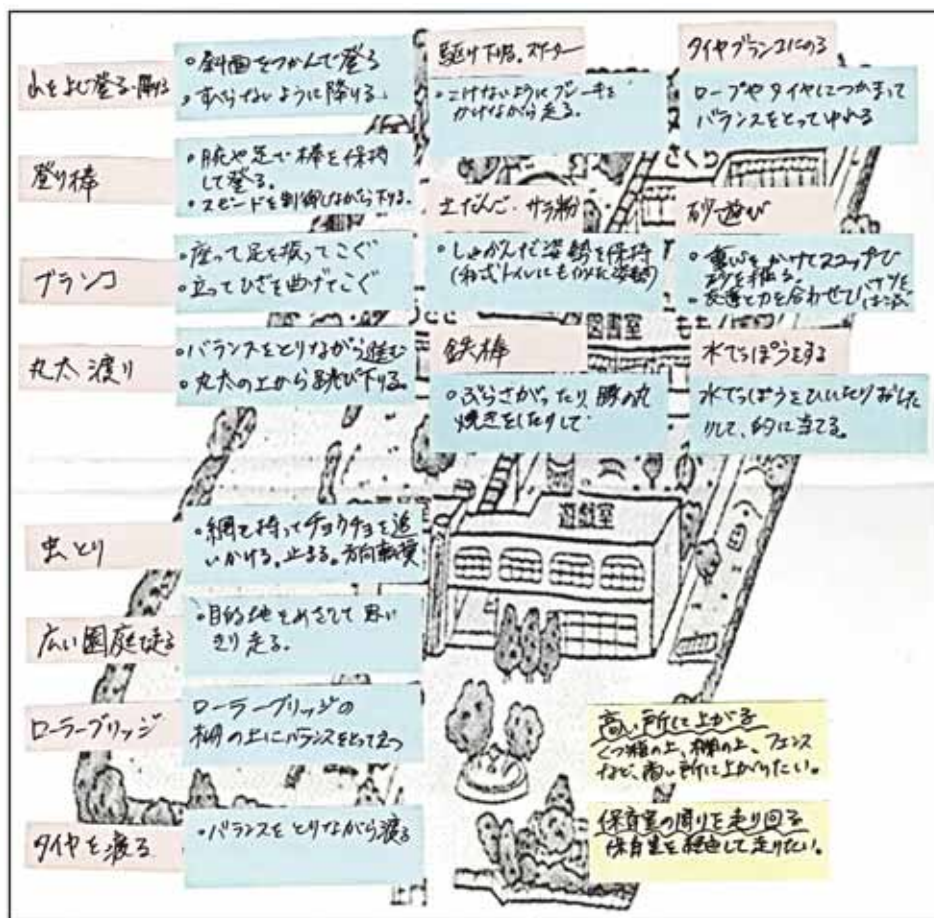 山をよじ登る・降りる
・斜面をつかんで登る
・すべらないように降りる。
登り棒
・腕や足で棒を保持
して登る。
・スピードを制御しながら下りる。
ブランコ
・座って足を振ってこぐ
・立ってひざを曲げてこぐ
丸太渡り
・バランスをとりながら進む
・丸太の上から跳び下りる。
虫とり
・網を持ってチョウチョを追
いかける。止まる。方向転換
広い園庭で走る
・目的地をめざして思い
きり走る。
ローラーブリッジ
ローラーブリッジの
柵の上にバランスをとって立つ
タイヤを渡る
・バランスをとりながら渡る
駆け下りる。スケーター
・こけないようにブレーキを
かけながら走る。
土だんご・サラ粉
・しゃがんだ姿勢を保持
(和式トイレにも似た姿勢)
鉄棒
・ぶらさがったり、豚の丸
焼きをしたりして
タイヤブランコにのる
ロープやタイヤにつかまって
バランスをとってゆれる
砂遊び
・重心をかけてスコップで
砂を掘る。
・友達と力を合わせてバケツを
はこぶ
水でっぽうをする
水でっぽうをひいたりおした
りして、的に当てる。
さくら
図書室
遊戯室
高い所に上がる
くつ箱の上、棚の上、フェンス
など、高い所に上がりたい。
保育室の周りを走り回る
保育室を経由して走りたい。
正門